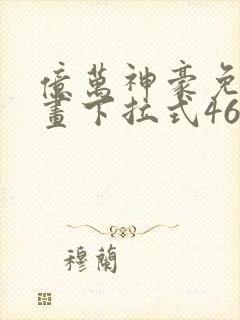 億萬神豪免
畫下拉式46
穆蘭